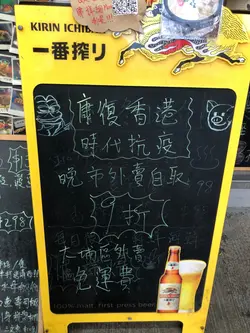 KIRIN ICHIBA
一番搾り
康復香港
時代抗疫
晚市外賣自取
9折
大埔區外賣
免運費
100% malt, first press beer